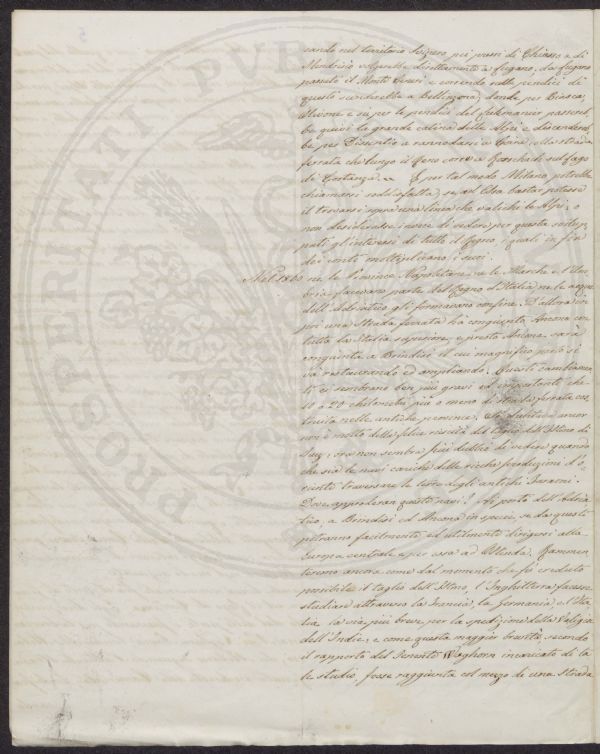 cando nel territorio Svizzero pei pressi di Chiasso e di
Mendrisio volgerebbe direttamente a Lugano, da Lugano
passato il Monte Ceneri e correndo nelle pendici di
questi scenderebbe a Bellinzona, donde per Biasca,
Olivone e su per le pendici del Lukmanier passereb-
be quivi la grande catena delle Alpi e discendereb-
be per Dissentis a rannodarsi a Coira alla strada
ferrata che lungo il Reno corre a Rorschach sul Lago
di Costanza. Per tal modo Milano potrebbe
chiamarsi soddisfatta, se ad Essa bastar potesse
il trovarsi sopra una linea che valichi le Alpi, e
non desiderasse invece di vedere per questa svilup-
pati gl'interessi di tutto il Regno, i quali in fin
de' conti moltiplicano i suoi.
Nel 1860 nè le Province Napoletane, nè le Marche e l'Um-
bria facevano parte del Regno d'Italia, nè le acque
dell'Adriatico gli formavano confine. D'allora in
poi una Strada ferrata ha congiunta Ancona con
tutta la Italia superiore, e presto Ancona sarà
congiunta a Brindisi il cui magnifico porto si
va restaurando ed ampliando. Questi cambiamen-
ti ci sembrano ben più gravi ed importanti che
10 o 20 chilometri più o meno di strada ferrata cos-
truita nelle antiche province. Si dubitava ancor
non è molto della felice riescita del taglio dell'Istmo di
Suez; ora non sembra più dubbio di vedere quando
che sia le navi cariche delle ricche produzioni d'O-
riente traversare le terre degli antichi Faraoni.
Dove approderan queste navi? Ai porti dell'Adria-
tico, a Brindisi ed Ancona in specie, se da questi
potranno facilmente ed utilmente dirigersi alla
Europa centrale e per essa ad Ostenda. Rammen-
teremo ancora come dal momento che fu creduto
possibile il taglio dell'Istmo, l'Inghilterra facesse
studiare attraverso la Francia, la Germania, e l'Ita-
lia la via più breve per la spedizione della Valigia
dell'Indie; e come questa maggior brevità, secondo
il rapporto del Tenente Waghorn incaricato di ta-
le studio, fosse raggiunta col mezzo di una Strada
PROSPERITATI PUBLICAE